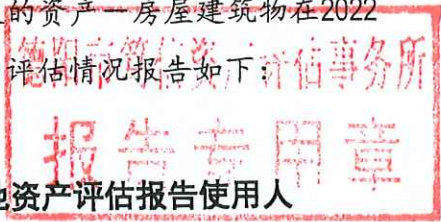 的资产—房屋建筑物在2022
评估情况报告如下：
德阳市 资产评估事务所
报告专用章
资产评估报告使用人